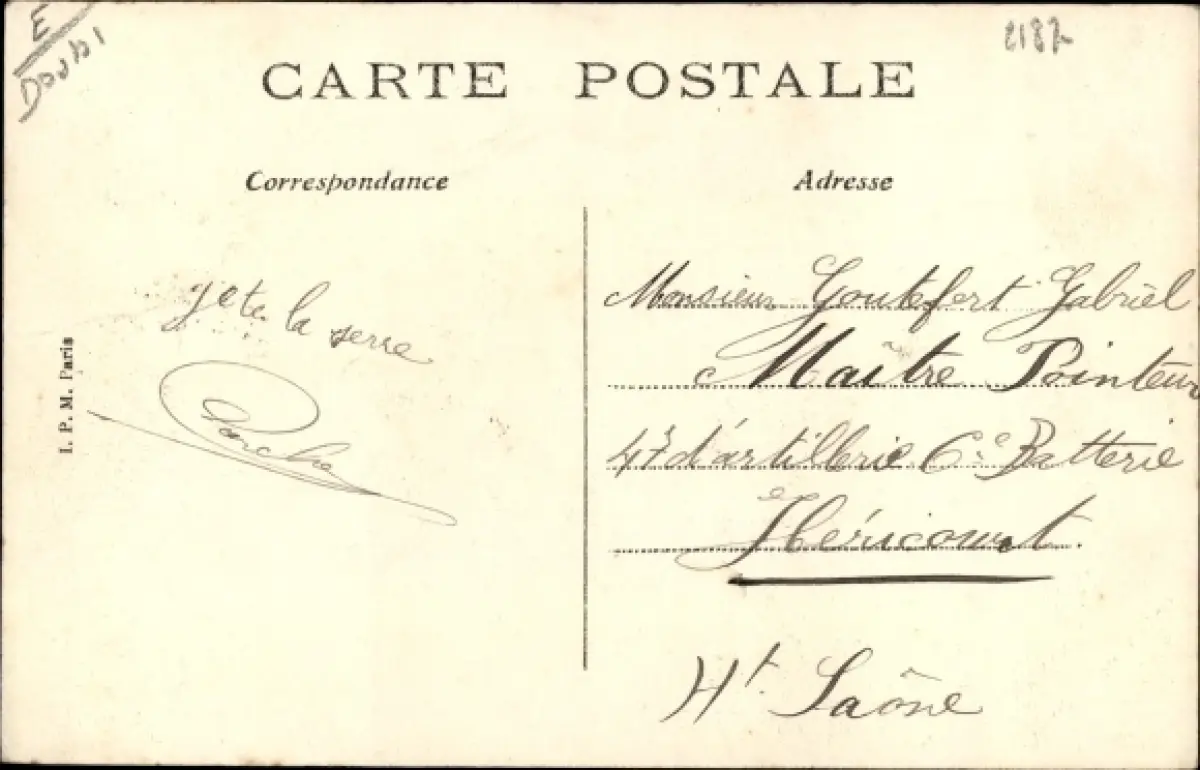 E
Doubs
2187
CARTE POSTALE
Correspondance
Adresse
I. P. M. Paris
Je te la serre
Monsieur Goutefert Gabriel
Maître Pointeur
47e d'artillerie 6e Batterie
Héricourt.
Hte Saône